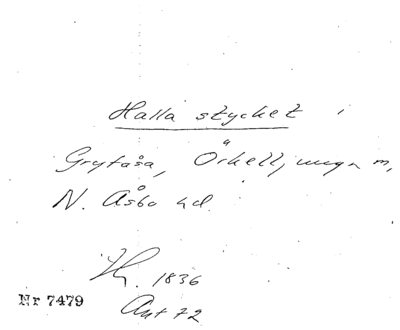 Halla stycket i
Grytåsa, Örkelljunga m,
N. Åsbo hd.
1836
Nr 7479
Ant 72